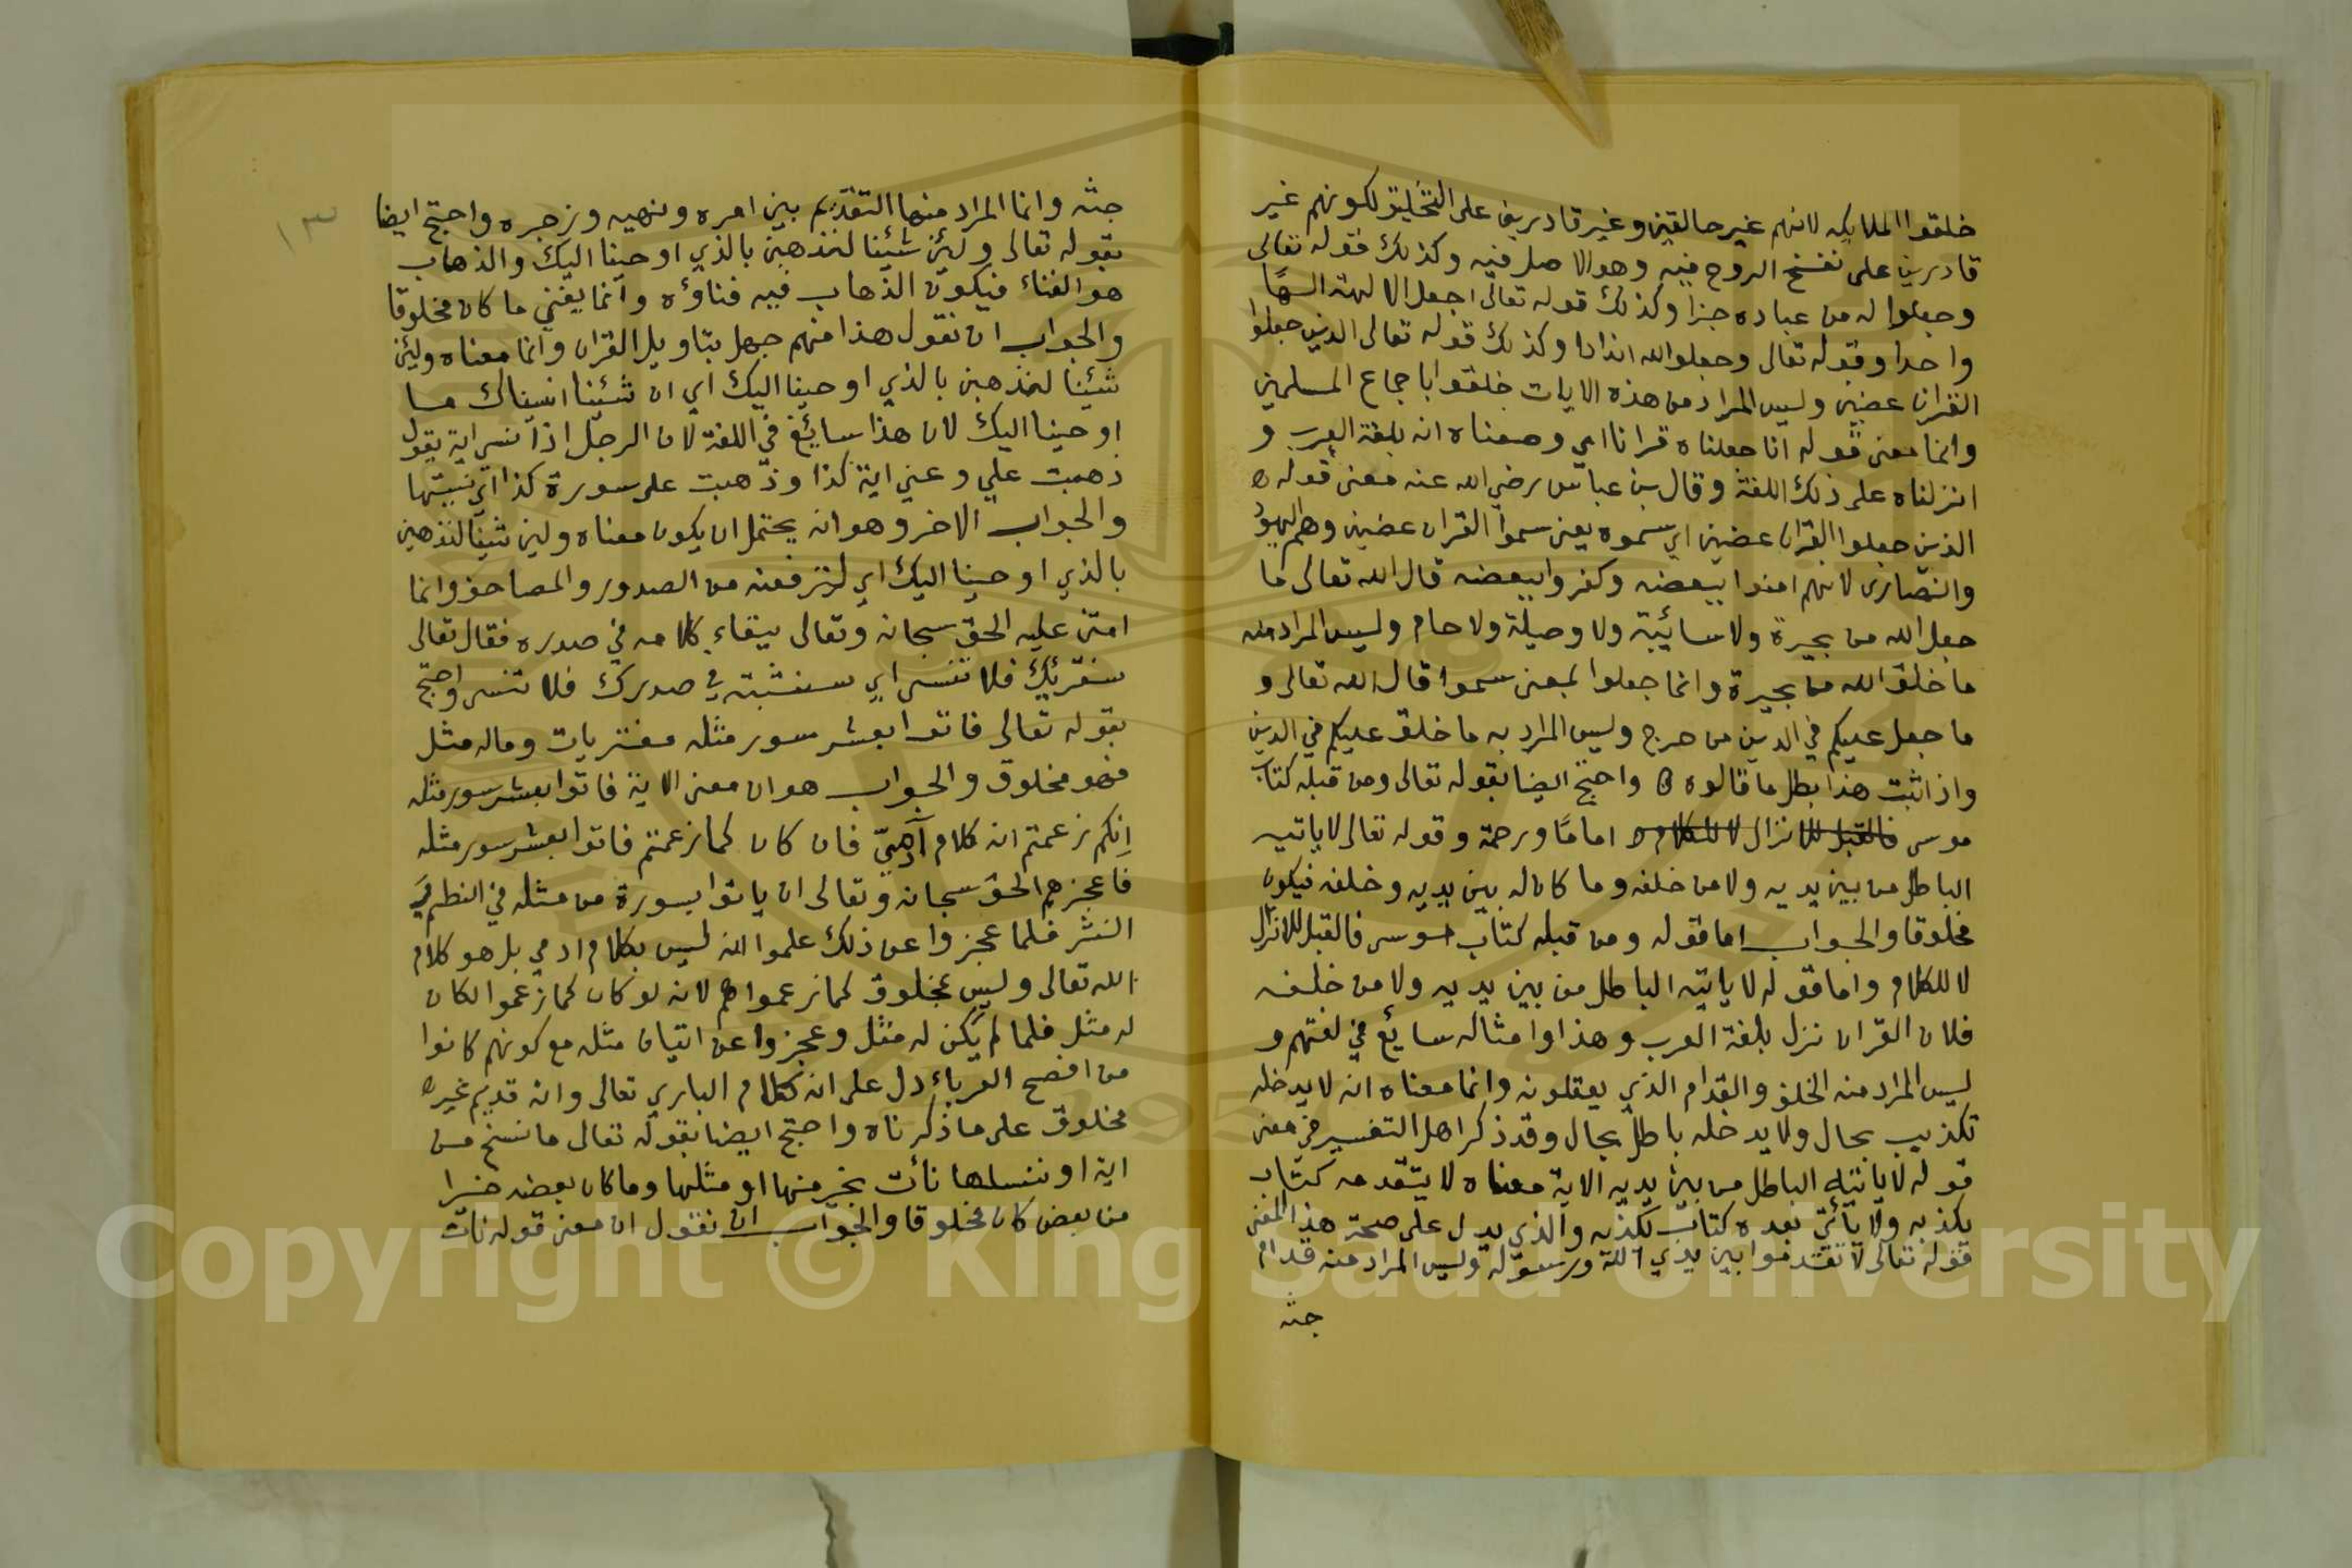 خلقوا الملايكه لانهم غير خالقين وغير قادرين على التخليق لكونهم غير
قادرين على نفخ الروح فيه وهو الاصل فيه وكذلك قوله تعالى
وجعلوا له من عباده جزا وكذلك قوله تعالى اجعل الالهة الهًا
واحدا وقوله تعالى وجعلوا لله اندادا وكذلك قوله تعالى الذين جعلوا
القران عضين وليس المراد من هذه الايات خلقوا باجماع المسلمين
وانما معنى قوله انا جعلناه قرانا اي وصفناه انه بلغة العرب و
انزلناه على ذلك اللغة وقال بن عباس رضي الله عنه معنى قوله
الذين جعلوا القران عضين اي سموه يعنى سموا القران عضين وهم اليهود
والنصارى لانهم امنوا ببعضه وكفروا ببعضه قال الله تعالى ما
جعل الله من بحيرة ولا سائيبة ولا وصيلة ولا حام وليس المراد منه
ما خلق الله من بحيرة وانما جعلوا بمعنى سموا قال الله تعالى و
ما جعل عليكم في الدين من حرج وليس المراد به ما خلق عليكم في الدين
واذا ثبت هذا بطل ما قالوه واحتج ايضا بقوله تعالى ومن قبله كتاب
موسى فالقبل للانزال لا للكلام امامًا ورحمة وقوله تعالى لا ياتيه
الباطل من بين يديه ولا من خلفه وما كان له بين يديه وخلفه فيكون
مخلوقا والجواب اما قوله ومن قبله كتاب موسى فالقبل للانزال
لا للكلام واما قوله لا ياتيه الباطل من بين يديه ولا من خلفه
فلان القران نزل بلغة العرب وهذا وامثاله سايئغ في لغتهم و
ليس المراد منه الخلف والقدام الذي يعقلونه وانما معناه انه لا يدخله
تكذيب بحال ولا يدخله باطل بحال وقد ذكر اهل التفسير في معنى
قوله لا ياتيه الباطل من بين يديه الاية معناه لا يتقدمه كتاب
يكذبه ولا يأتي بعده كتاب يكذبه والذي يدل على صحة هذا المعنى
قوله تعالى لا تقدموا بين يدي الله ورسوله وليس المراد منه قدام
جثه
١٣
جثه وانما المراد منها التقديم بين امره ونهيه وزجره واحتج ايضا
بقوله تعالى ولئن شئنا لنذهبن بالذي اوحينا اليك والذهاب
هو الفناء فيكون الذهاب فيه فناؤه وانما يفني ما كان مخلوقا
والجواب ان نقول هذا منهم جهل بتاويل القران وانما معناه ولئن
شئينا لنذهبن بالذي اوحينا اليك اي ان شئينا انسيناك ما
اوحينا اليك لان هذا سايئغ في اللغة لان الرجل اذا نسى اية يقول
ذهبت علي وعني اية كذا وذهبت على سورة كذا اي نسيتها
والجواب الاخر وهو انه يحتمل ان يكون معناه ولين شينا لنذهبن
بالذي اوحينا اليك اي لنرفعنه من الصدور والمصاحف وانما
امتن عليه الحق سبحانه وتعالى ببقاء كلامه في صدره فقال تعالى
سنقريئك فلا تنسى اي سنثبته في صدرك فلا تنسى واحتج
بقوله تعالى فاتوا بعشر سور مثله مفتريات وماله مثل
فهو مخلوق والجواب هو ان معنى الاية فاتوا بعشر سور مثله
انكم زعمتم انه كلام آدميّ فان كان كما زعمتم فاتوا بعشر سور مثله
فاعجزهم الحق سبحانه وتعالى ان ياتوا بسورة من مثله في النظم و
النثر فلما عجزوا عن ذلك علموا انه ليس بكلام ادمي بل هو كلام
الله تعالى وليس بمخلوق كما زعموا هم لانه لو كان كما زعموا لكان
له مثل فلما لم يكن له مثل وعجزوا عن اتيان مثله مع كونهم كانوا
من افصح العرباء دل على انه كلام الباري تعالى وانه قديم غير
مخلوق على ما ذكرناه واحتج ايضا بقوله تعالى ما ننسخ من
اية او ننسلها نأت بخير منها او مثلها وما كان بعضه خيرا
من بعض كان مخلوقا والجواب ان نقول ان معنى قوله نات
Copyright © King Saud University